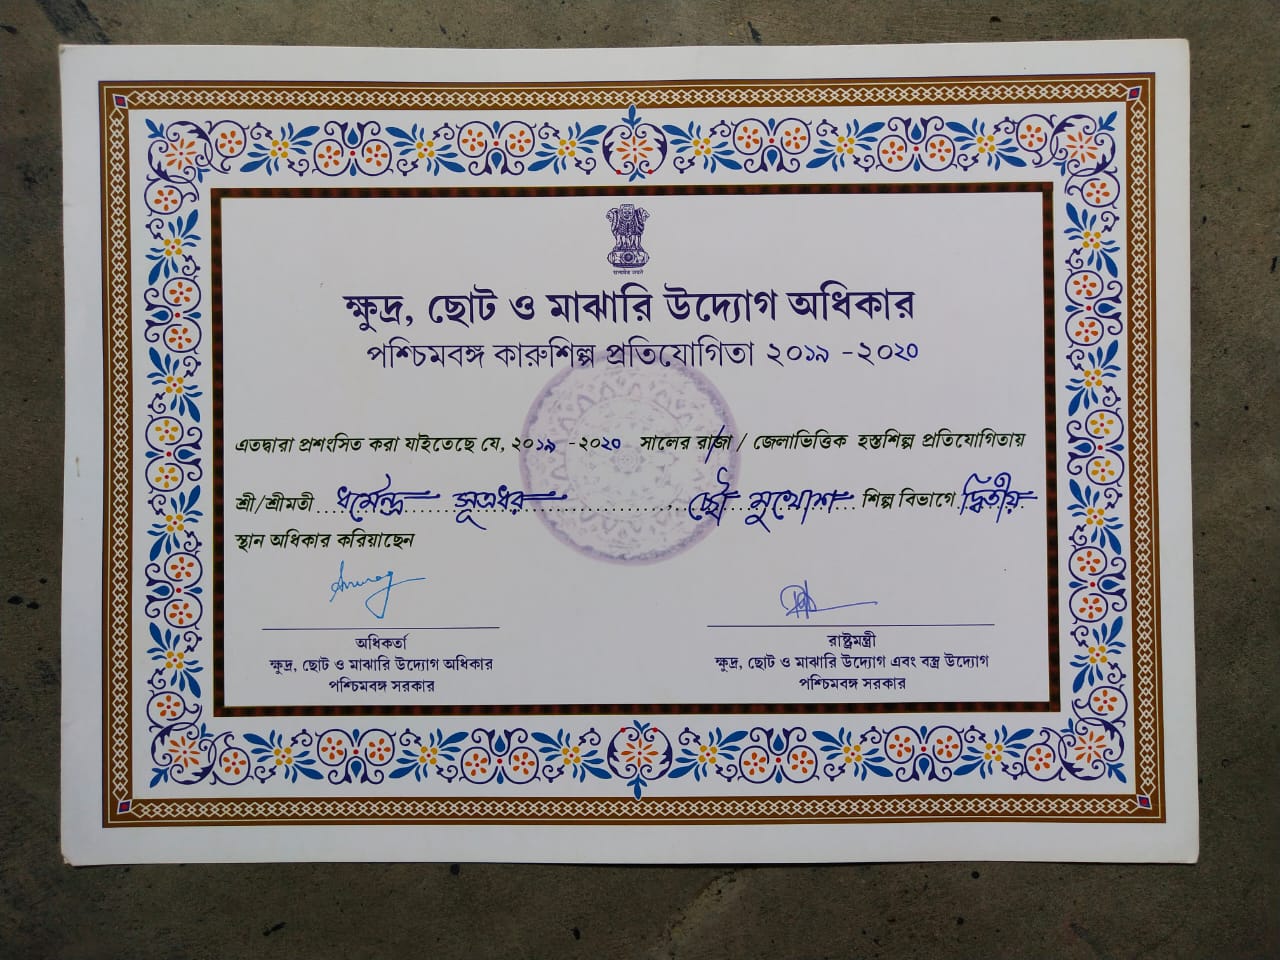 सत्यमेव जयते
ক্ষুদ্র, ছোট ও মাঝারি উদ্যোগ অধিকার
পশ্চিমবঙ্গ কারুশিল্প প্রতিযোগিতা ২০১৯ -২০২০
এতদ্বারা প্রশংসিত করা যাইতেছে যে, ২০১৯ -২০২০ সালের রাজ্য / জেলাভিত্তিক হস্তশিল্প প্রতিযোগিতায়
শ্রী/শ্রীমতী ধর্মেন্দ্র সূত্রধর ছৌ মুখোশ শিল্প বিভাগে দ্বিতীয়
স্থান অধিকার করিয়াছেন
অধিকর্তা
ক্ষুদ্র, ছোট ও মাঝারি উদ্যোগ অধিকার
পশ্চিমবঙ্গ সরকার
রাষ্ট্রমন্ত্রী
ক্ষুদ্র, ছোট ও মাঝারি উদ্যোগ এবং বস্ত্র উদ্যোগ
পশ্চিমবঙ্গ সরকার